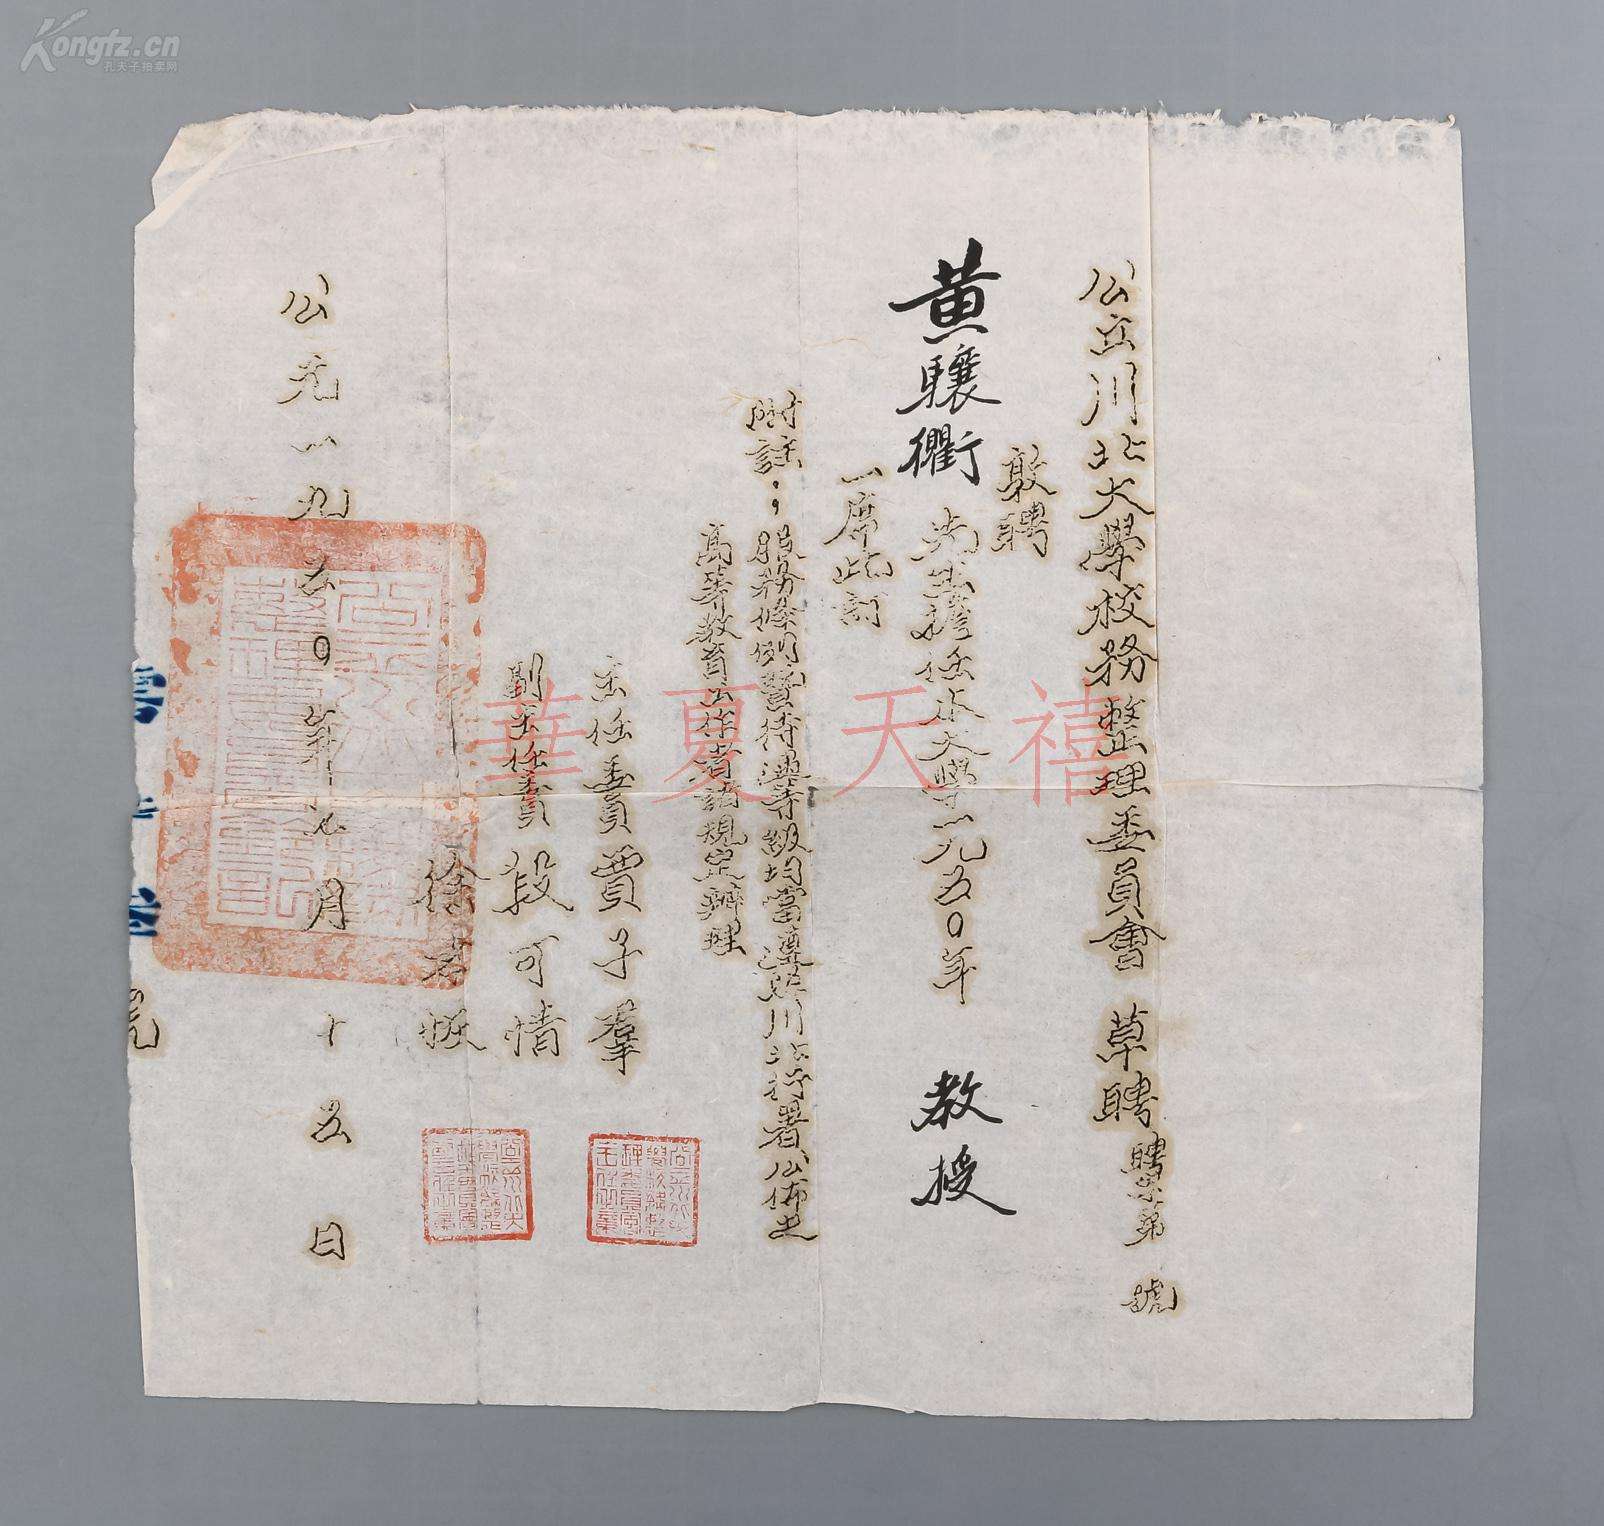 Kongfz.cn
孔夫子拍卖网
公立川北大學校務整理委員會 草聘 聘字第 號
敦聘
黄驤衢 先生擔任本大學一九五〇年 教授
一席此訂
附註：服務條例暨待遇等級均當遵照川北行署公佈之
高等教育工作者諸規定辦理
主任委員 賈子羣
副主任委員 段可情
徐
公元一九五〇年 月十五日
號
華夏天禧